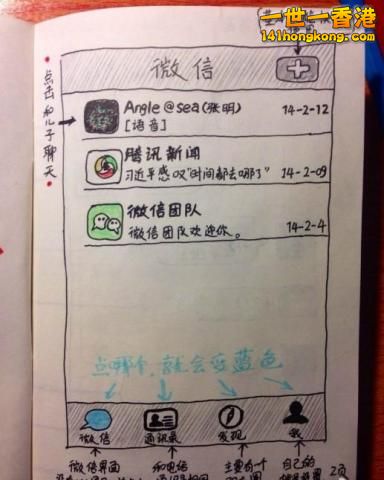 一世一香港
141hongkong.com
微信
点击和儿子聊天
Angle@sea(张明)
14-2-12
[语音]
腾讯新闻
习近平感叹"时间都去哪了"
14-2-09
微信团队
微信团队欢迎你。
14-2-4
点哪个,就会变蓝色
微信
通讯录
发现
我
微信界面
和电信
主要有一个
自己的
2页